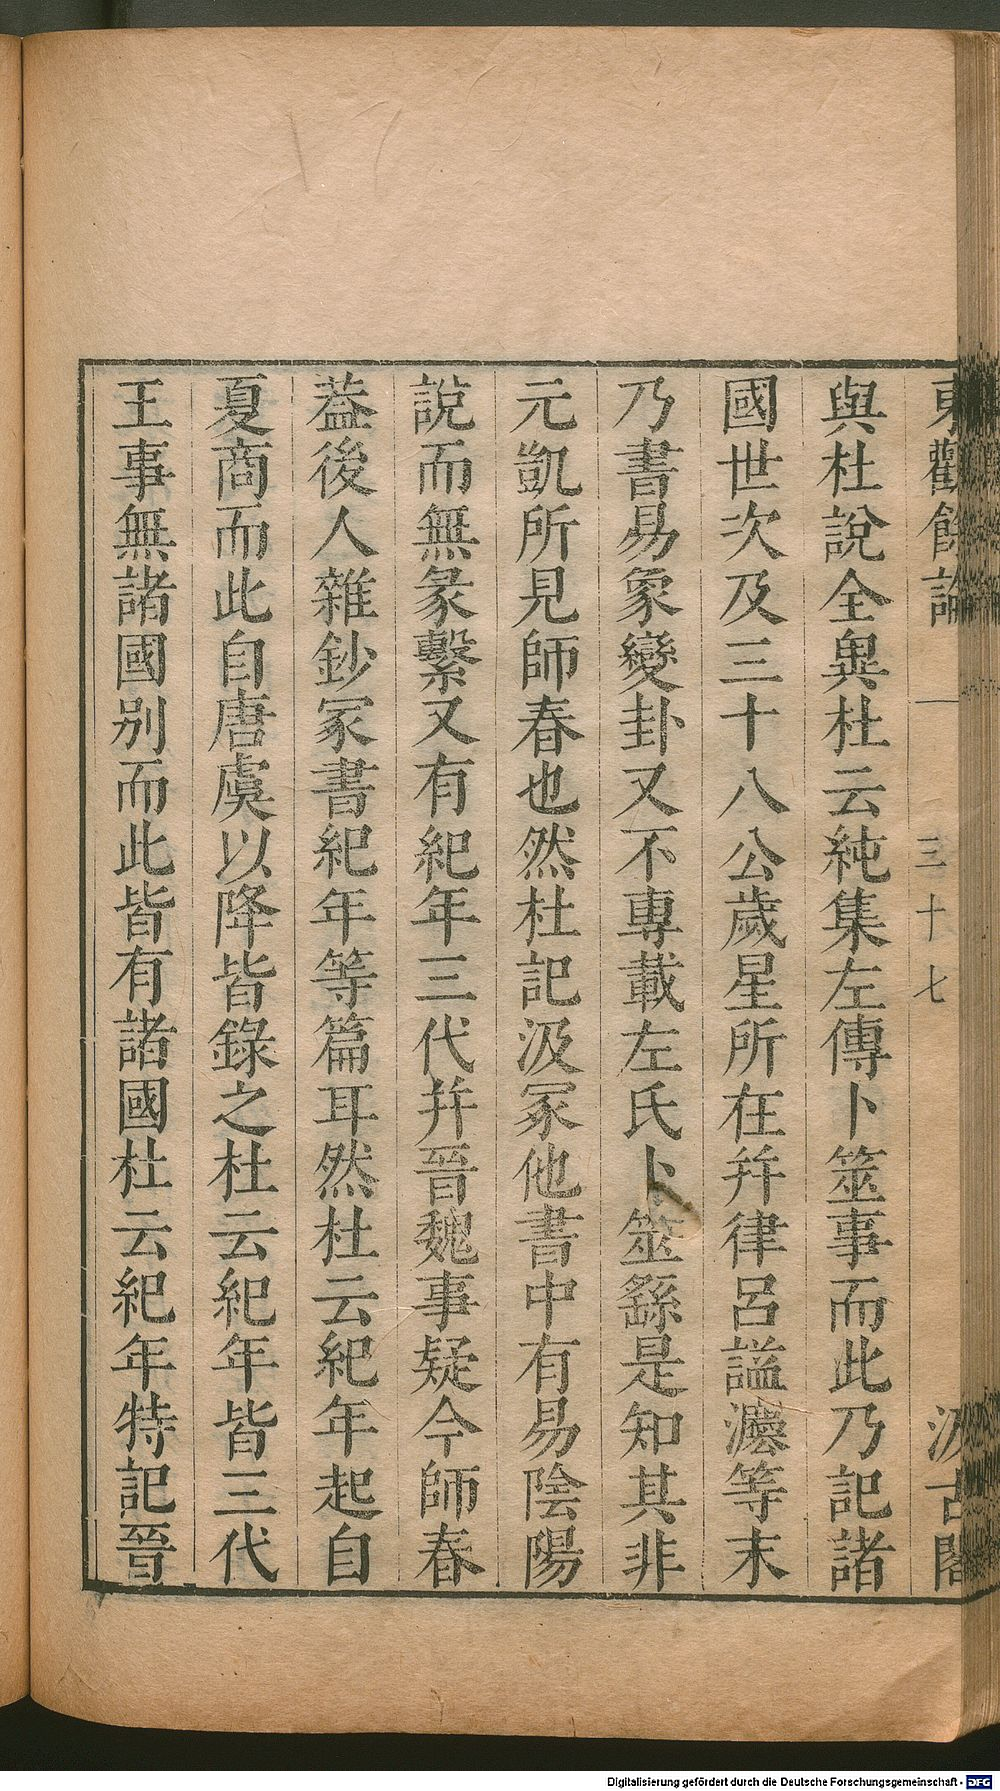 東觀餘論 一 三十七 汲古閣
與杜說全異杜云純集左傳卜筮事而此乃記諸
國世次及三十八公歲星所在幷律呂謚灋等末
乃書易象變卦又不專載左氏卜筮繇是知其非
元凱所見師春也然杜記汲冢他書中有易陰陽
說而無彖繫又有紀年三代幷晉魏事疑今師春
葢後人雜鈔冢書紀年等篇耳然杜云紀年起自
夏商而此自唐虞以降皆錄之杜云紀年皆三代
王事無諸國别而此皆有諸國杜云紀年特記晉
Digitalisierung gefördert durch die Deutsche Forschungsgemeinschaft - DFG